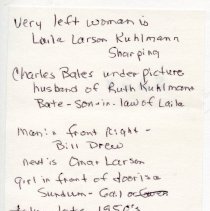 Very left woman is
Laila Larson Kuhlmann
Sharping
Charles Bales under picture
husband of Ruth Kuhlmann
Bate - son-in-law of Laila
Man in front Right -
Bill Drew
next is Omar Larson
girl in front of door is a
Sundum - Gal
late 1950's